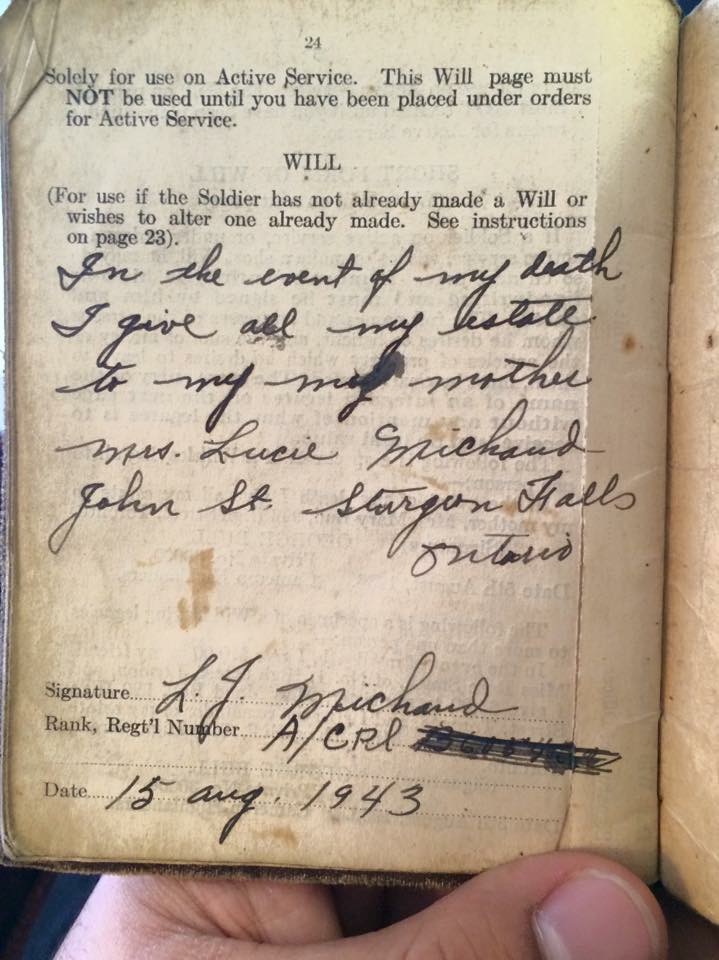 24
Solely for use on Active Service. This Will page must
NOT be used until you have been placed under orders
for Active Service.
WILL
(For use if the Soldier has not already made a Will or
wishes to alter one already made. See instructions
on page 23).
In the event of my death
I give all my estate
to my my mother
Mrs. Lucie Michaud
John St. Sturgeon Falls
Ontario
Signature..... L. J. Michaud
Rank, Regt'l Number... A/CPL
Date..... 15 Aug. 1943